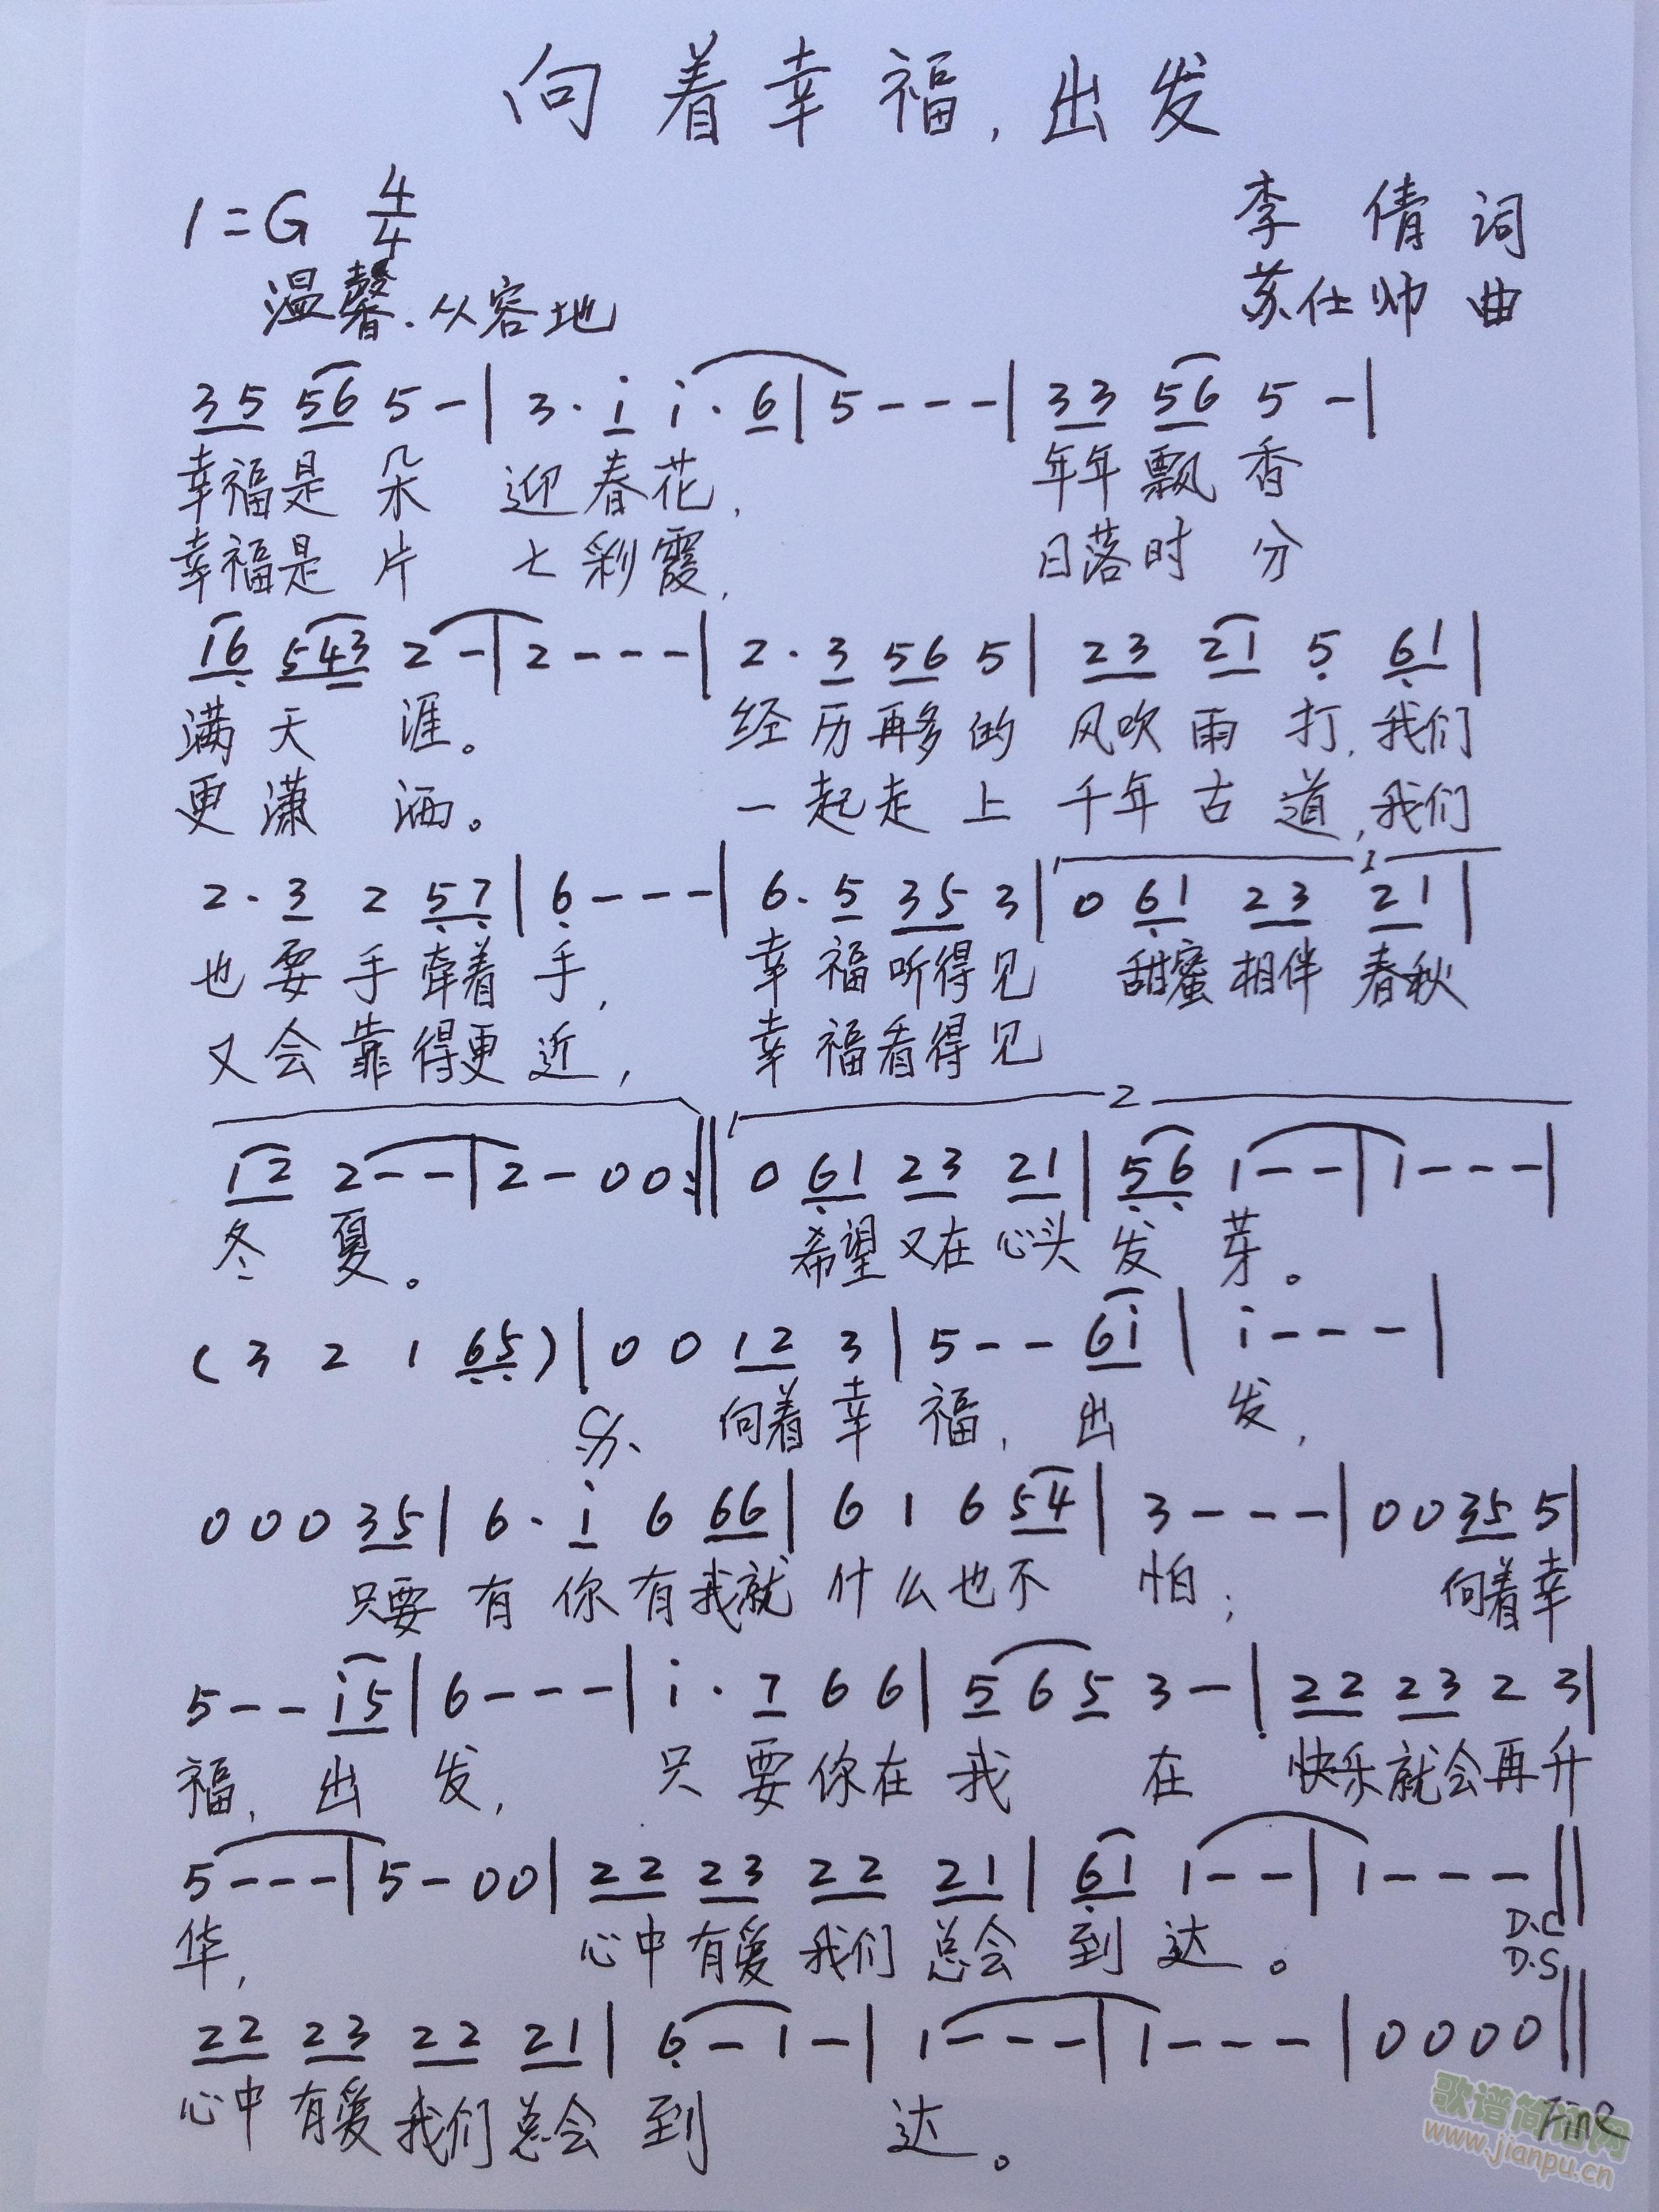 向着幸福,出发
1=G 4/4
李倩词
温馨.从容地
苏仕帅曲
35 56 5 - | 3 · i i · 6 | 5 - - - | 33 56 5 - |
幸福是朵 迎春花, 年年飘香
幸福是片 七彩霞, 日落时分
16 543 2 - | 2 - - - | 2 · 3 56 5 | 23 21 5 61 |
满天涯。 经历再多的 风吹雨打,我们
更潇洒。 一起走上 千年古道,我们
2 · 3 2 57 | 6 - - - | 6 · 5 35 3 | 0 61 23 21 |
也要手牵着手, 幸福听得见 甜蜜相伴春秋
又会靠得更近, 幸福看得见
12 2 - - | 2 - 0 0 :|| 0 61 23 21 | 56 1 - - | 1 - - - |
冬夏。 希望又在心头发芽。
( 3 2 1 65 ) | 0 0 12 3 | 5 - - 6i | i - - - |
向着幸福,出发,
0 0 0 35 | 6 · i 6 66 | 6 1 6 54 | 3 - - - | 0 0 35 5 |
只要有你有我就什么也不怕; 向着幸
5 - - i5 | 6 - - - | i · 7 6 6 | 5 6 5 3 - | 22 23 2 3 |
福,出发, 只要你在我在 快乐就会再升
5 - - - | 5 - 0 0 | 22 23 22 21 | 61 1 - - | 1 - - - ||
华, 心中有爱我们总会到达。 D.C
D.S
22 23 22 21 | 6 - 1 - | 1 - - - | 1 - - - | 0 0 0 0 ||
心中有爱我们总会到达。 Fine
歌谱简谱网
www.jianpu.cn